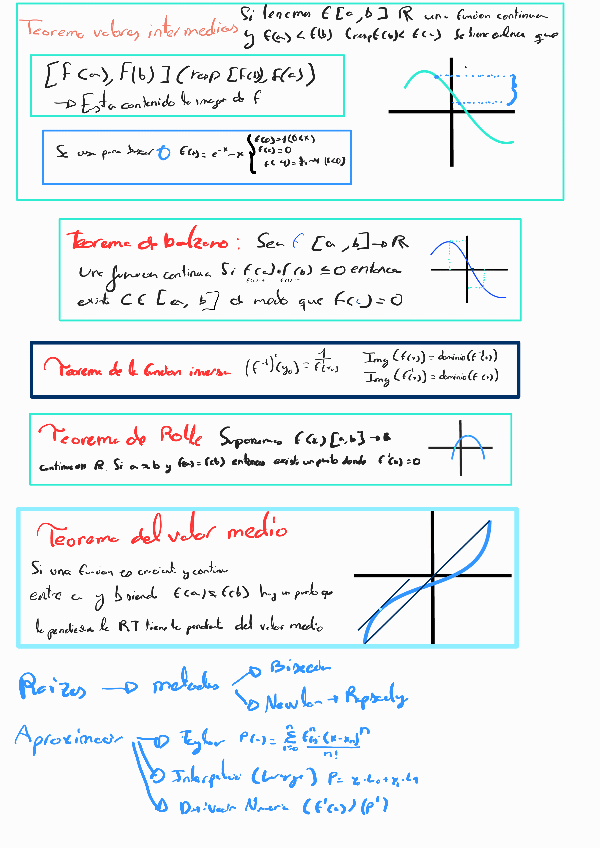 Teorema valores intermedios Si tenemos f[a,b] ℝ una funcion continua
y f(a) < f(b) (resp f(b) < f(a)) Se tiene que
[f(a), f(b)] (resp [f(b), f(a)])
→ Esta contenido la imagen de f
Se usa para buscar 0 f(x) = e^-x - x
f(x)=0
Teorema de bolzano: Sea f [a,b] → ℝ
una funcion continua Si f(a)·f(b) ≤ 0 entonces
existe C ∈ [a, b] de modo que f(c) = 0
Teorema de la funcion inversa (f^-1)'(y0) = 1/f'(x0) Img (f(x)) = dominio(f^-1(x))
Img (f^-1(x)) = dominio(f(x))
Teorema de Rolle Suponemos f(x) [a,b] → ℝ
continua en ℝ. Si a≈b y f(a)=f(b) entonces existe un punto donde f'(x)=0
Teorema del valor medio
Si una funcion es creciente y continua
entre a y b siendo f(a) ≈ f(b) hay un punto que
la pendiente de la RT tiene la pendiente del valor medio
Raizes → metodos → Biseccion
→ Newton → Rapsody
Aproximar → Taylor P(x) = Σ f^n(x)·(x-x0)^n / n!
→ Interpolar (Lagrange) P = y·L0 + y1·L1
→ Derivacion Numerica (f'(x)) (P')